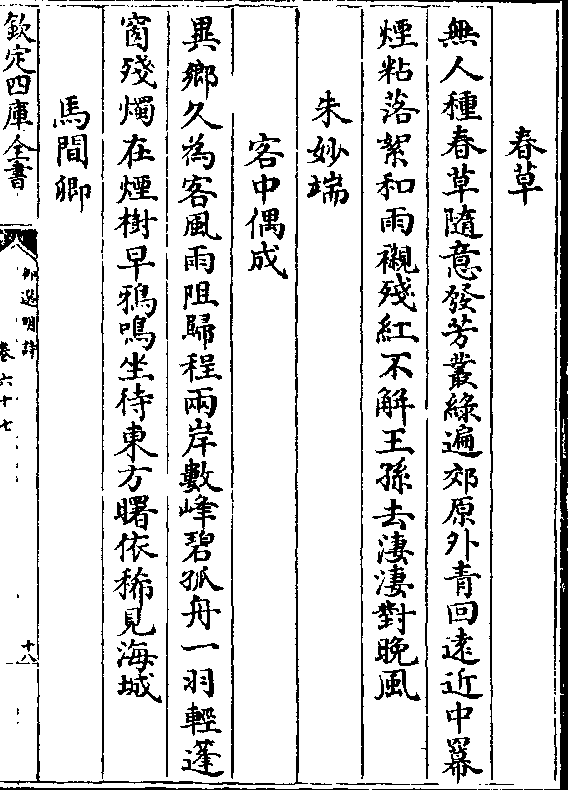 春草
無人種春草隨意發芳叢綠遍郊原外青回逺近中羃
煙粘落絮和雨襯殘紅不解王孫去淒淒對晚風
朱妙端
客中偶成
異鄉久為客風雨阻歸程兩岸數峰碧孤舟一羽輕蓬
窗殘燭在煙樹早鴉鳴坐待東方曙依稀見海城
馬間卿
欽定四庫全書
御選明詩
卷六十七
十八